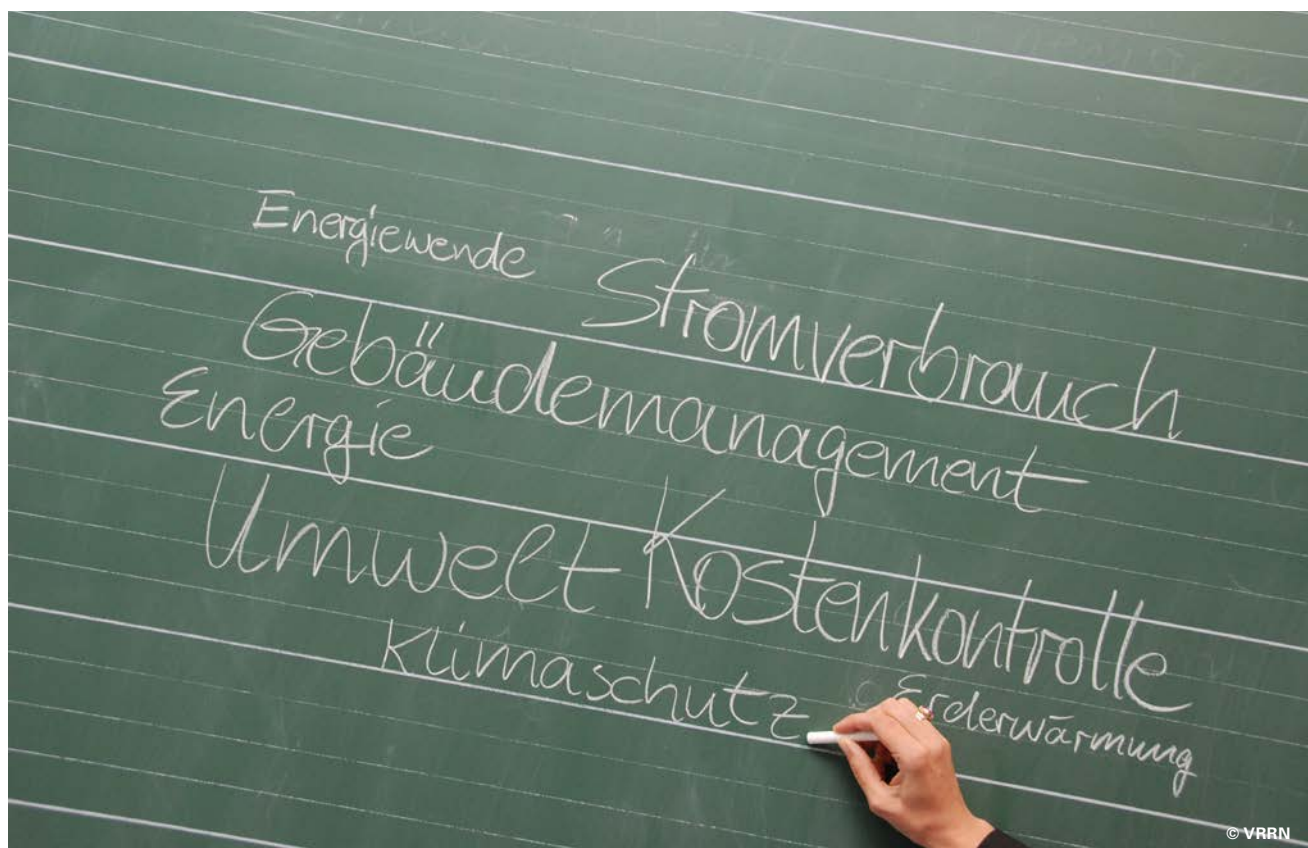 Energiewende Stromverbrauch
Gebäudemanagement
Energie
Umwelt Kostenkontrolle
Klimaschutz Erderwärmung
© VRRN